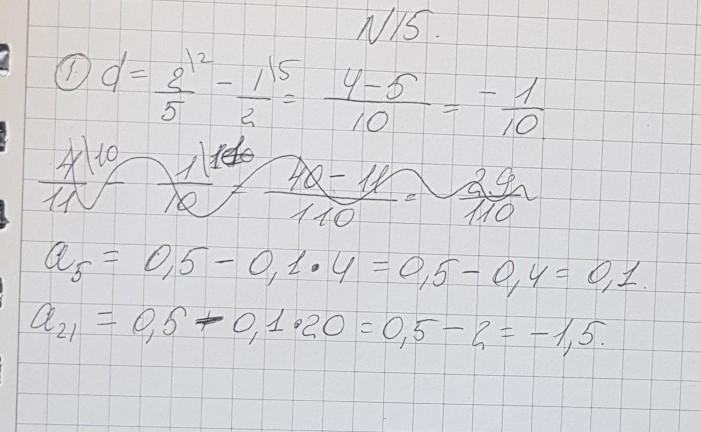 N15.
① d = 2\2/5 - 1\5/2 = 4-5/10 = -1/10
4\10/11 - 1\11/10 = 40-11/110 = 29/110
a₅ = 0,5 - 0,1 · 4 = 0,5 - 0,4 = 0,1.
a₂₁ = 0,5 - 0,1 · 20 = 0,5 - 2 = -1,5.